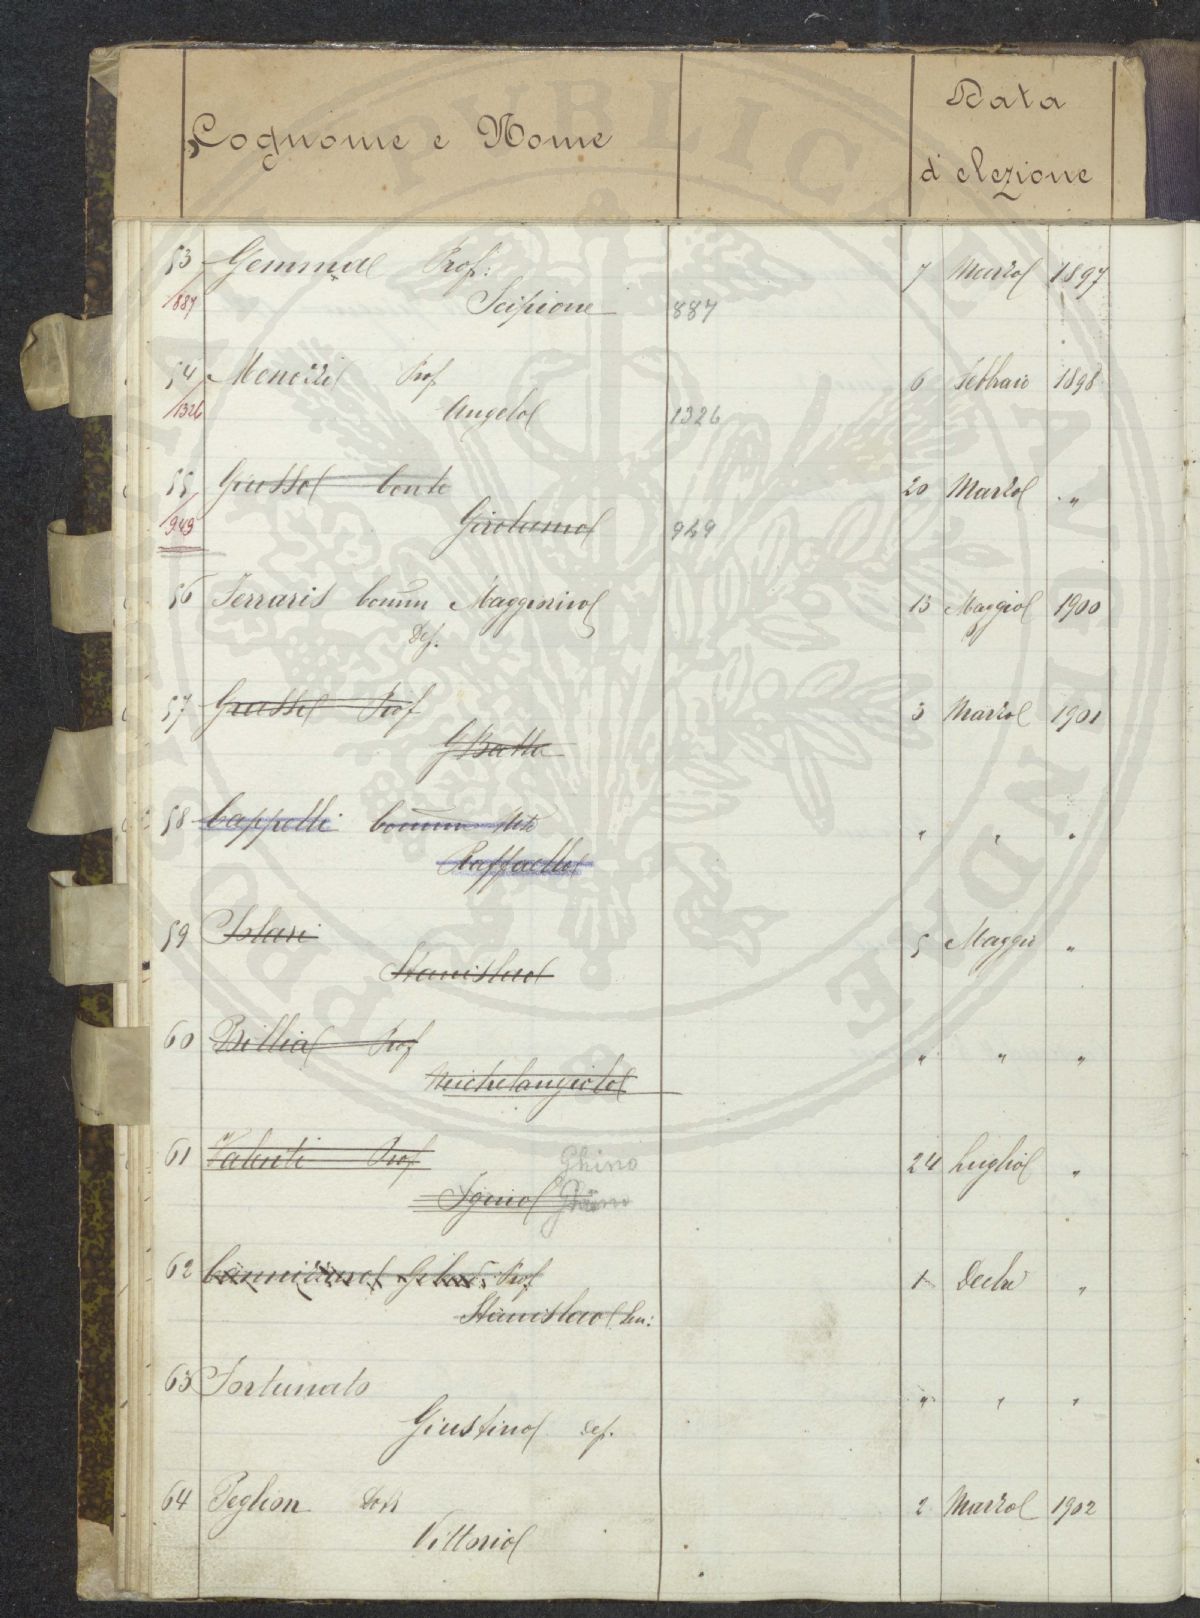 Cognome e Nome
Data
d'elezione
53 Gemma Prof:
7 Marzo 1897
887
Scipione
887
54 Menozzi Prof
6 Febbraio 1898
1326
Angelo
1326
55 Giusso Conte
20 Marzo "
949
Girolamo
949
56 Ferraris Comm Maggiorino
13 Maggio 1900
Dep.
57 Grassi Prof
3 Marzo 1901
GBatta
58 Cappelli Comm
" " "
Raffaello
59 Solari
5 Maggio "
Stanislao
60 Billia Prof
" " "
Michelangiolo
61 Valenti Prof
Ghino
24 Luglio "
Ghino
62 Cannizzaro Prof
1 Decbe "
Stanislao Sen:
63 Fortunato
" " "
Giustino Dep.
64 Peglion Dott
2 Marzo 1902
Vittorio
PVBLICAE AVGENDAE PROSPERITATI